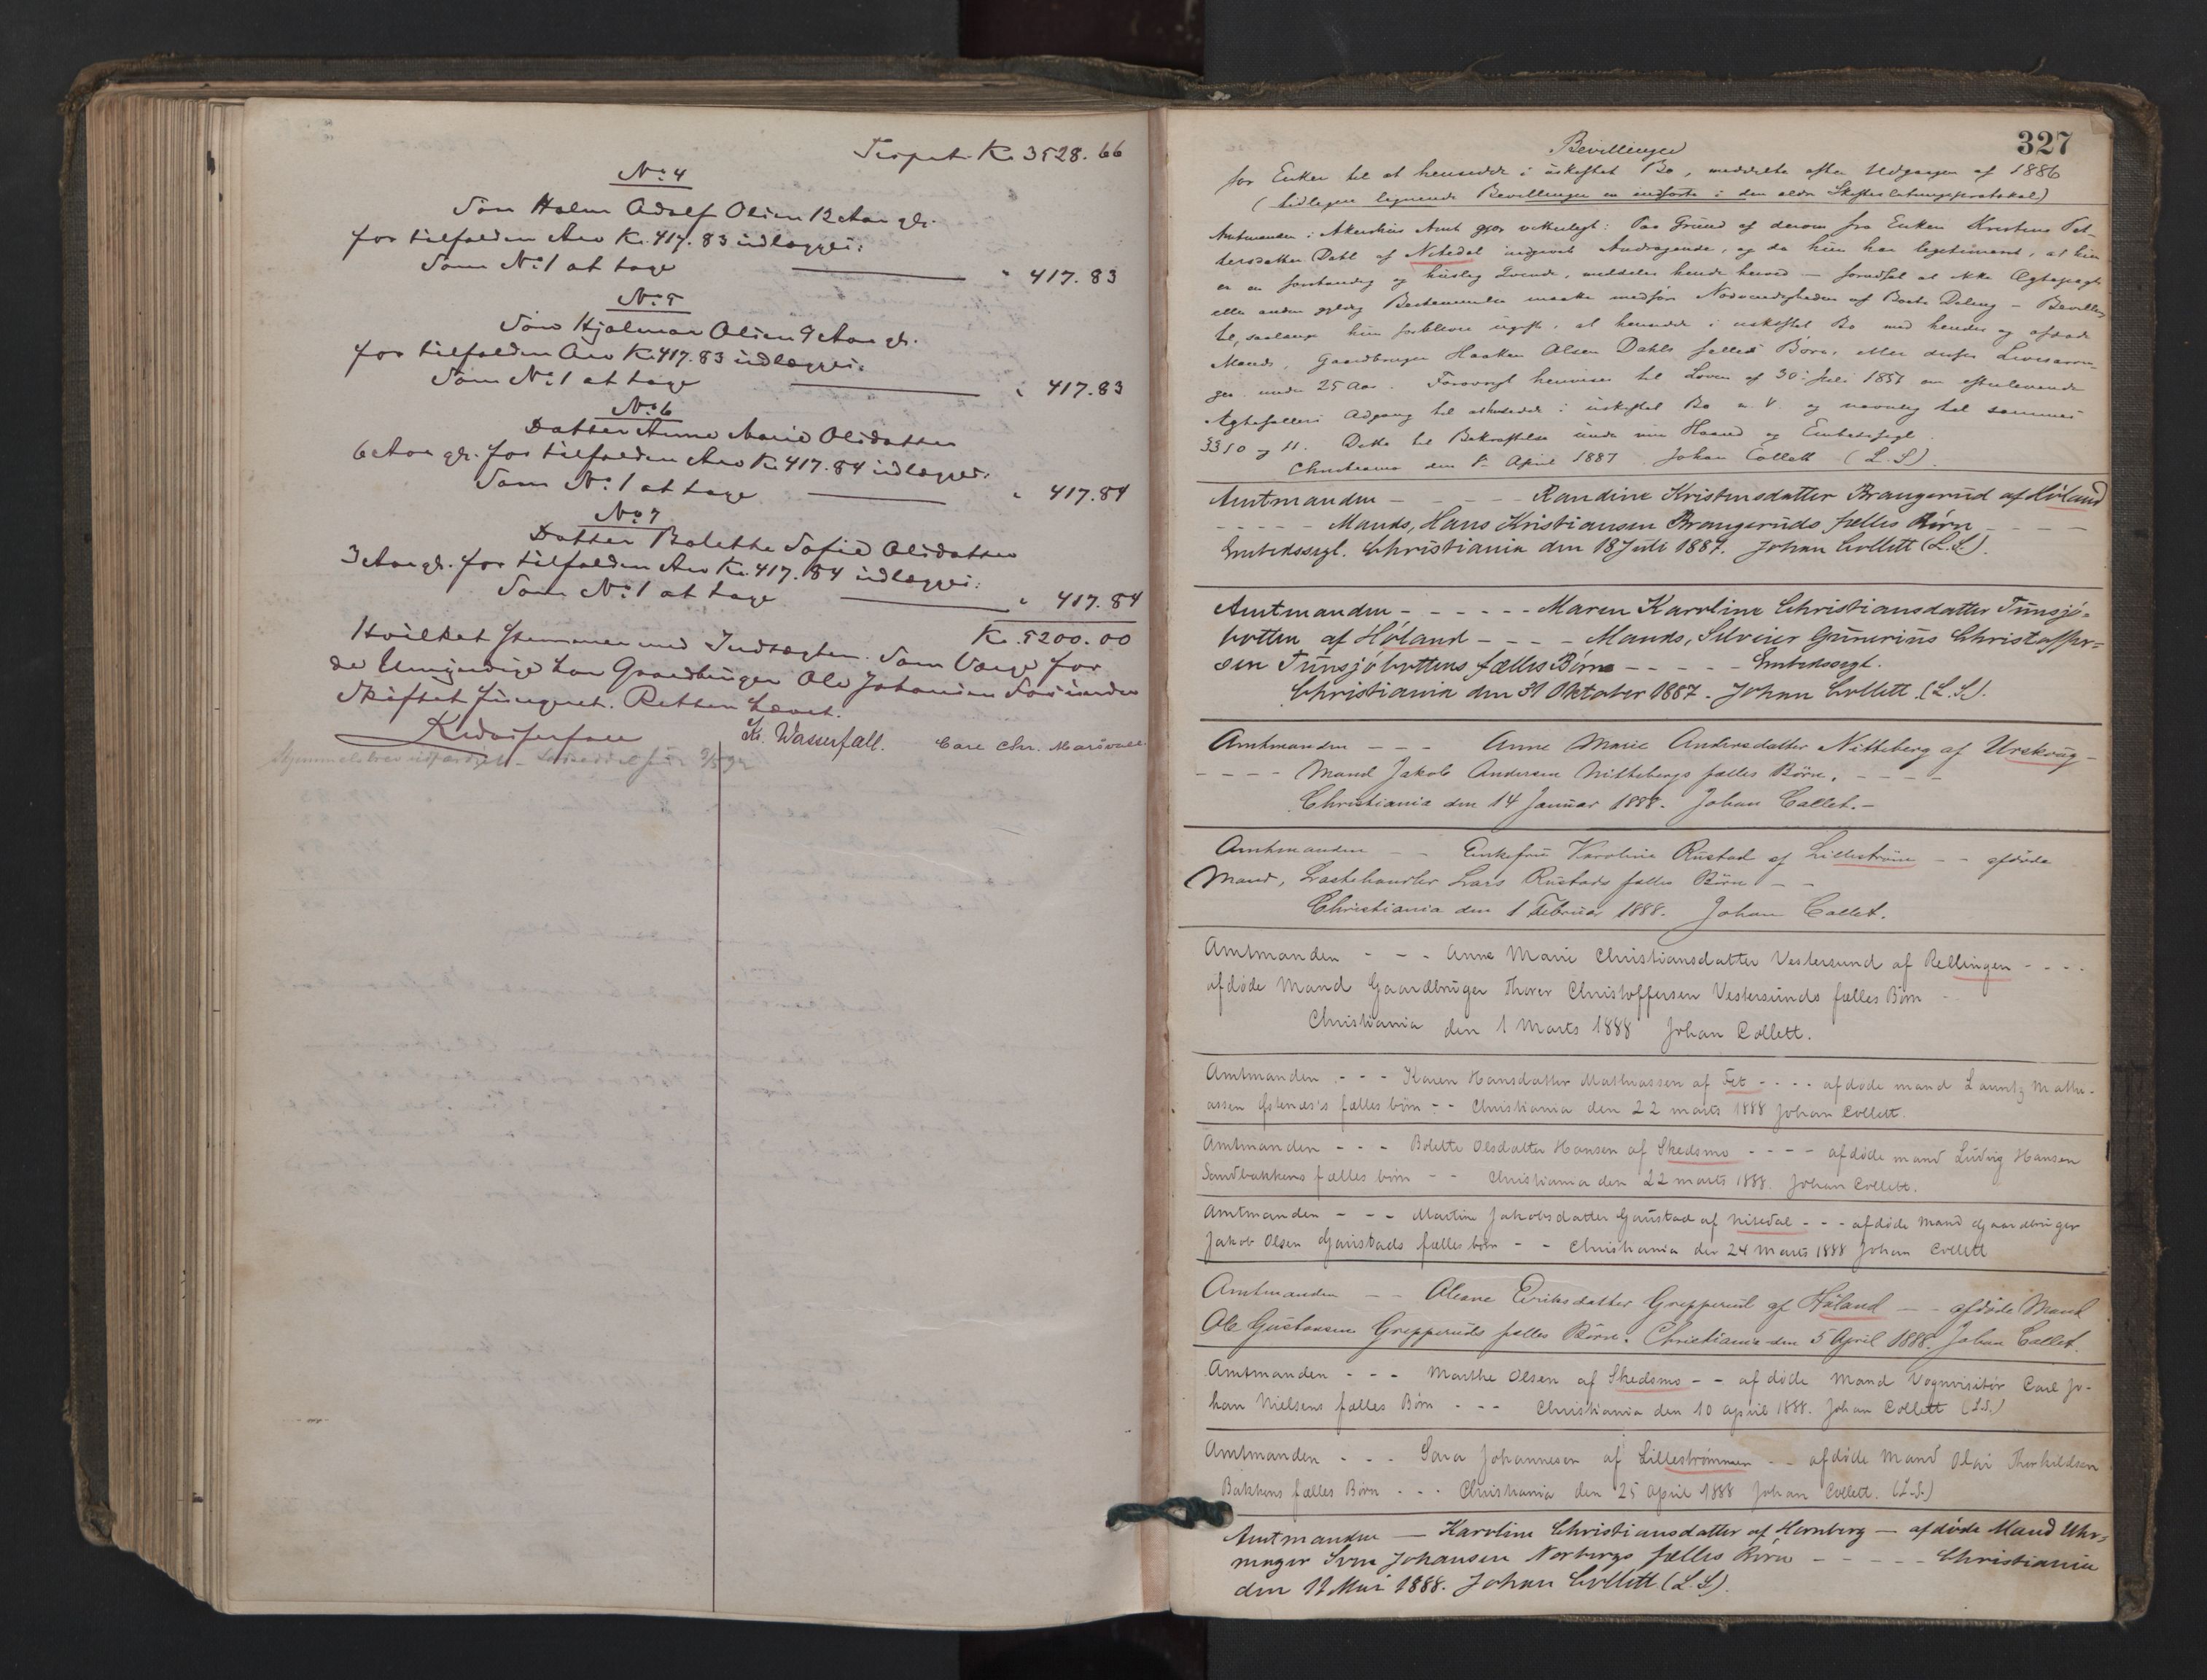 Transport Kr. 3528.66
No. 4
Søn Halm Adolf Olsen 12 Aar gl.
for tilfalden Arv Kr. 417.83 udlægges:
Som No. 1 at tage " 417.83
No. 5
Søn Hjalmar Olsen 9 Aar gl.
for tilfalden Arv Kr. 417.83 udlægges:
Som No. 1 at tage " 417.83
No. 6
Datter Anne Marie Olsdatter
6 Aar gl. for tilfalden Arv Kr. 417.84 udlægges:
Som No. 1 at tage " 417.84
No. 7
Datter Bolette Sofie Olsdatter
3 Aar gl. for tilfalden Arv Kr. 417.84 udlægges:
Som No. 1 at tage " 417.84
Kr. 5200.00
Hvilket stemmer med Indtægten. Som Værge for
de Umyndige har Gaardbruger Ole Johansen under
Skiftet fungeret. Retten hævet.
Kr. Wasserfall. Carl Chr.
327
Bevillinger
for Enker til at hensidde i uskiftet Bo, meddelte efter Udgangen af 1886
(tidligere lignende Bevillinger er indførte i den ældre Skiftesletningsprotokol)
Amtmanden i Akershus Amt gjør vitterligt: Paa Grund af derom fra Enken Kristine Pet-
tersdatter Dahl af Nitedal indgivet Andragende, og da hun har legitimeret, at hun
er en forstandig og huslig Kvinde, meddeles hende herved — forudsat at ikke Ægtepagt
eller anden gyldig Bestemmelse maatte medføre Nødvendigheden af Boets Deling — Bevilling
til, saalænge hun forbliver ugift, at hensidde i uskiftet Bo med hendes og afdøde
Mands, Gaardbruger Haaken Olsen Dahls fælles Børn, eller disses Livsarvin-
ger under 25 Aar. Forøvrigt henvises til Loven af 30. Juli 1851 om efterlevende
Ægtefællers Adgang til at hensidde i uskiftet Bo m. V. og navnlig til sammes
§§ 10 og 11. Dette til Bekræftelse under min Haand og Embedssegl.
Christiania den 1. April 1887. Johan Collett (L.S).
Amtmanden - - - Randine Kristensdatter Brangerud af Høland
- - - - - Mands, Hans Kristiansen Brangeruds fælles Børn - - - -
Embedssegl. Christiania den 18 Juli 1887. Johan Collett (L.S.).
Amtmanden - - - - - - Maren Karoline Christiansdatter Tunsjø-
botten af Høland - - - - Mands, Silvier Gunerius Christoffer-
sen Tunsjøbottens fælles Børn - - - - - Embedssegl.
Christiania den 31 Oktober 1887. Johan Collett. (L.S.).
Amtmanden - - - Anne Marie Andersdatter Nitteberg af Urskoug -
- - - - Mand Jakob Andersen Nittebergs fælles Børn. - - - -
Christiania den 14 Januar 1888. Johan Collet. -
Amtmanden - - Enkefru Karoline Rustad af Lillestrøm - - afdøde
Mand, Lastehandler Lars Rustads fælles Børn - -
Christiania den 1 Februar 1888. Johan Collet.
Amtmanden - - - Anne Marie Christiansdatter Vestersund af Rellingen - - - -
afdøde Mand Gaardbruger Thorer Christoffersen Vestersunds fælles Børn -
Christiania den 1 Marts 1888 Johan Collett.
Amtmanden - - - Karen Hansdatter Mathiassen af Fet - - - - afdøde mand Lauritz Mathi-
assen Østenæs's fælles børn - - Christiania den 22 marts 1888 Johan Collett.
Amtmanden - - - Bolette Olsdatter Hansen af Skedsmo - - - - afdøde mand Ludvig Hansen
Sandbakkens fælles børn - - Christiania den 22 marts 1888. Johan Collett.
Amtmanden - - - Martine Jakobsdatter Gaustad af Nitedal - - - afdøde Mand Gaardbruger
Jakob Olsen Gaustads fælles børn - - Christiania den 24 Marts 1888 Johan Collett
Amtmanden - - Oleane Eriksdatter Grepperud af Høland - - afdøde Mand
Ole Gustavsen Grepperuds fælles Børn. Christiania den 5 April 1888. Johan Collet.
Amtmanden - - - Marthe Olsen af Skedsmo - - afdøde Mand Vognvisitør Carl Jo-
han Nielsens fælles Børn - - - Christiania den 10 April 1888. Johan Collett (L.S.)
Amtmanden - - - Sara Johannesen af Lillestrømmen - - afdøde Mand Olai Thorkildsen
Bakkens fælles Børn - - - Christiania den 25 April 1888 Johan Collett. (L.S.)
Amtmanden — Karoline Christiansdatter af Hernberg — afdøde Mand Uhr-
mager Sven Johansen Norbergs fælles Børn - - - - - Christiania
den 11 Mai 1888. Johan Collett (L.S).